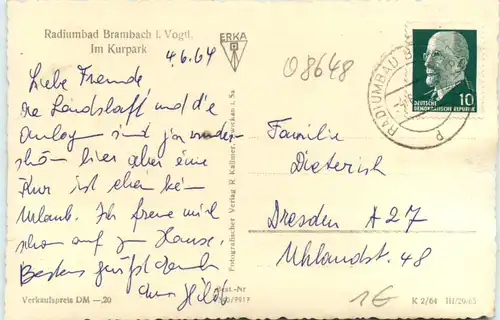 Radiumbad Brambach i. Vogtl.
Im Kurpark
4.6.64
ERKA
Liebe Freunde,
die Landschaft und die
Anlagen sind ja wunder-
schön hier aber eine
Kur ist eben kein
Urlaub. Ich freue mich
schon auf zu Hause.
Bestens grüßt Euch
Hilde
Verkaufspreis DM —,20
Best.-Nr
Fotografischer Verlag R. Kallmer, Zwickau i. Sa.
08648
RADIUMBAD B
DEUTSCHE
DEMOKRATISCHE REPUBLIK
10
Familie
Dieterich
Dresden A 27
Uhlandst. 48
1€
K 2/64 III/29/65